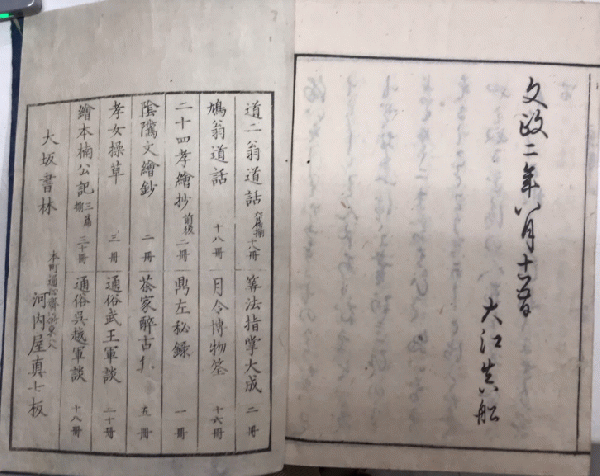 文政二年八月十五日
大江真船
道二翁道話 六篇揃 十八冊
筭法指掌大成 二冊
鳩翁道話 十八冊
月令博物筌 十六冊
二十四孝繪抄 前後 二冊
鼎左秘録 一冊
陰隲文繪鈔 二冊
茶家醉古 五冊
孝女操草 三冊
通俗武王軍談 二十冊
繪本楠公記 三篇揃 三十冊
通俗呉越軍談 十八冊
大坂書林
河内屋真七板